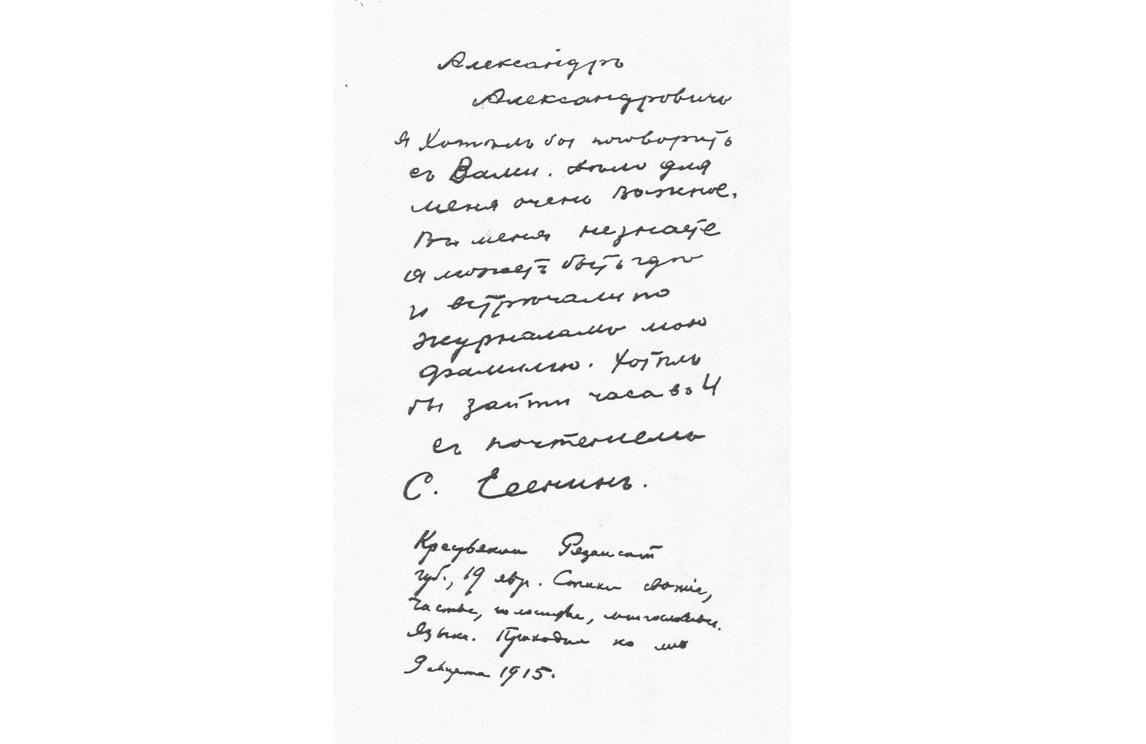 Александръ
Александровичъ
я Хотѣлъ бы поговорить
съ Вами. Дѣло для
меня очень важное.
Вы меня не знаете
а может быть где
и встрѣчали по
журналамъ мою
фамилию. Хотѣлъ
бы зайти часа въ 4
съ почтениемъ
С. Есенинъ.
Крестьянин Рязанской
губ., 19 лет. Стихи свежие,
чистые, голосистые, многословный
язык. Приходил ко мне
9 марта 1915.